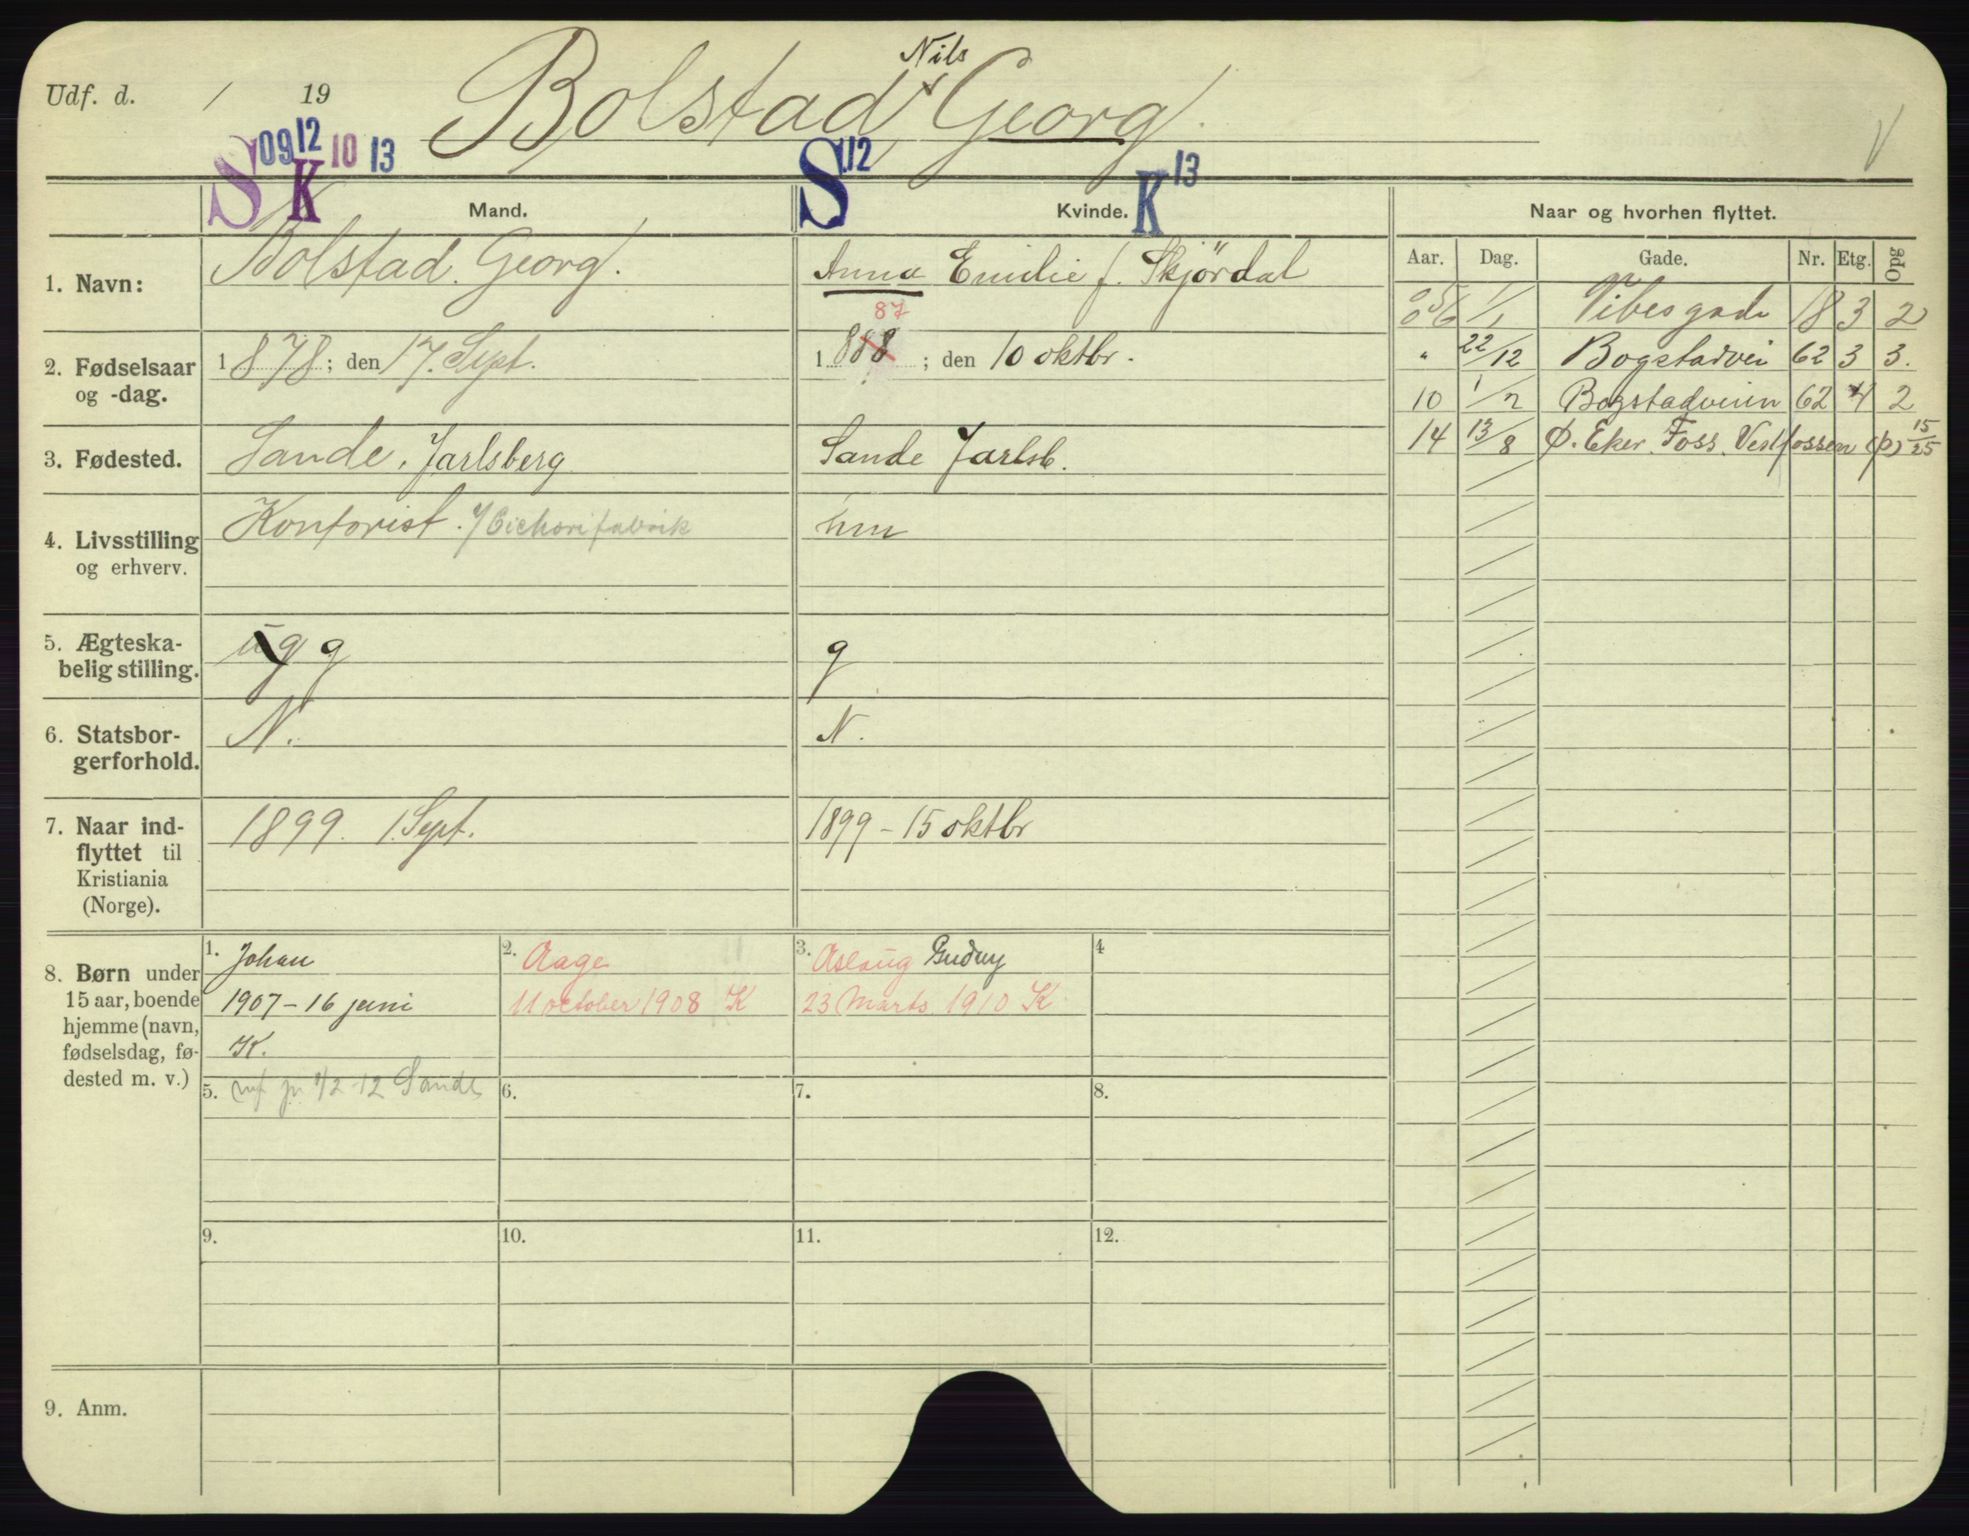 Nils
Udf. d. / 19 Bolstad Georg. V
S 09 12 K 10 13 S 12 K 13
Mand. Kvinde. Naar og hvorhen flyttet.
Aar. Dag. Gade. Nr. Etg. Opg
1. Navn: Bolstad. Georg. Anna Emilie f. Skjördal
87
2. Fødselsaar og -dag. 1878; den 17. Sept. 1888; den 10 oktbr.
3. Fødested. Sande, Jarlsberg Sande Jarlsb.
4. Livsstilling og erhverv. Kontorist. hm
5. Ægteska-
belig stilling. ug g g
6. Statsbor-
gerforhold. N. N.
7. Naar ind-
flyttet til
Kristiania
(Norge). 1899. 1. Sept. 1899 - 15 oktbr
8. Børn under
15 aar, boende
hjemme (navn,
fødselsdag, fø-
dested m. v.)
1. Johan
1907 - 16 juni
K.
2. Aage
11 october 1908 K
3. Aslaug Gudny
23 Marts 1910 K
4
5. 1/2 - 12 Sande
6.
7.
8.
9.
10.
11.
12.
9. Anm.
1/1 Vibesgade 18 3 2
" 22/12 Bogstadvei 62 3 3.
10 1/2 Bogstadveien 62 4 2
14 13/8 Ø. Eker. Foss. Vestfossen (p) 15/25